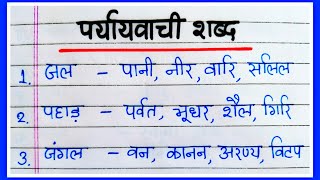 पर्यायवाची शब्द
1. जल – पानी, नीर, वारि, सलिल
2. पहाड़ – पर्वत, भूधर, शैल, गिरि
3. जंगल – वन, कानन, अरण्य, विटप